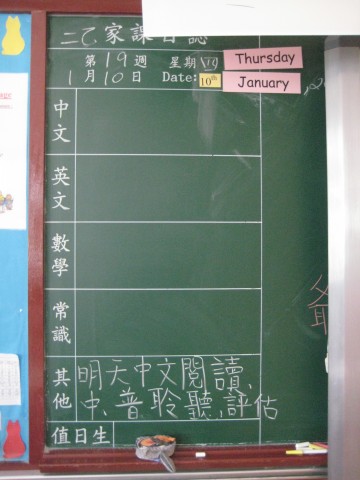 二乙家課日誌
第19週 星期四 Thursday
1月10日 Date: 10th January
中文
英文
數學
常識
其他 明天中文閱讀、
中、普聆聽評估
值日生